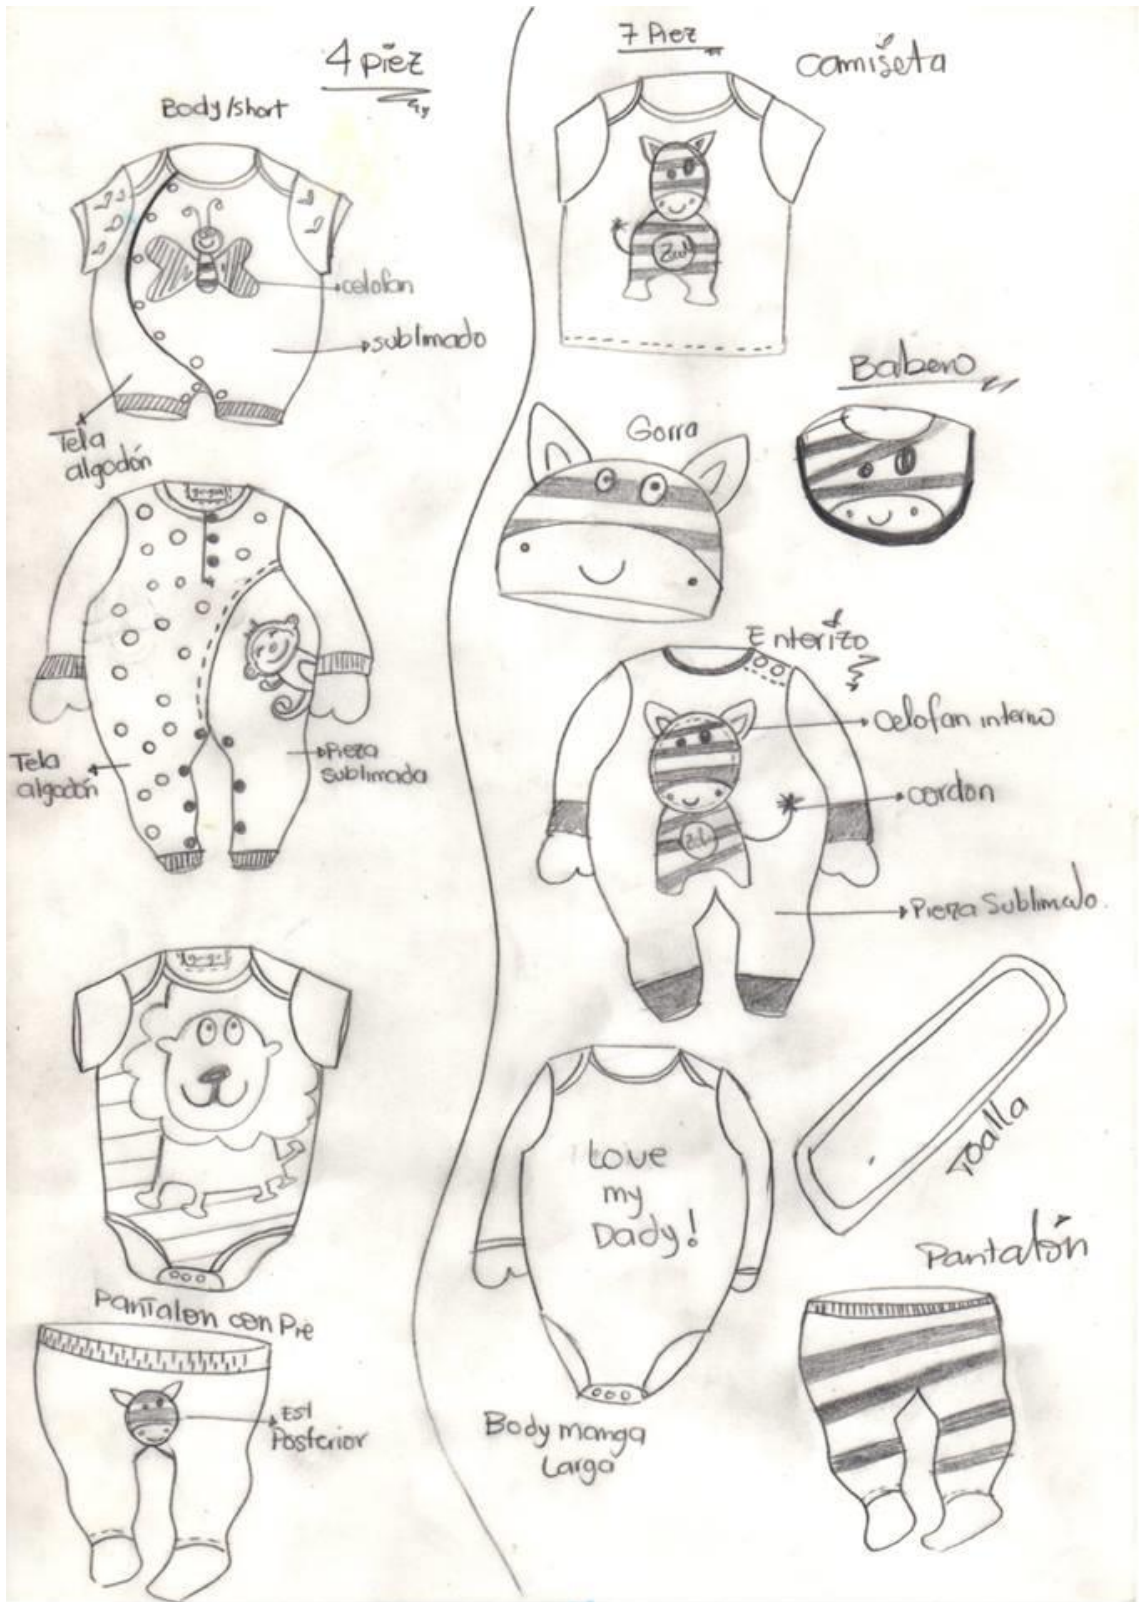 4 Piez
Body/short
celofan
sublimado
Tela
algodón
Tela
algodón
Pieza
sublimada
Pantalon con Pie
Est
Posterior
7 Piez
camiseta
Babero
Gorra
Enterizo
celofan interno
cordon
Pieza Sublimado.
Love
my
Dady!
Toalla
Pantalón
Body manga
Larga